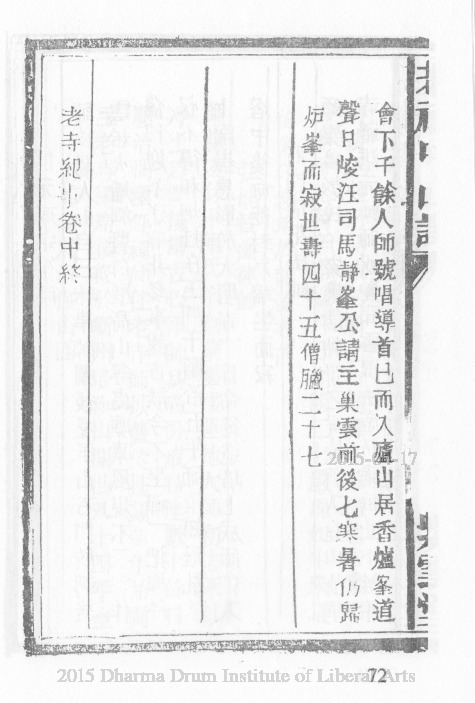 會下千餘人師號唱導首已而入廬山居香爐峯道
聲日峻汪司馬靜峯公請主巢雲前後七寒暑仍歸
炉峯而寂世壽四十五僧臘二十七
老寺紀
卷中終
2015 Dharma Drum Institute of Liberal Arts
72